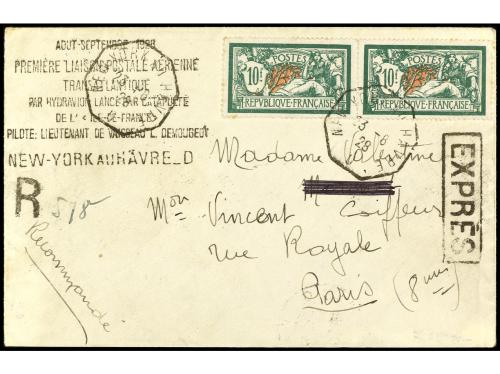 AOUT-SEPTEMBRE 1928
PREMIÈRE LIAISON POSTALE AÉRIENNE
TRANSATLANTIQUE
PAR HYDRAVION LANCÉ PAR CATAPULTE
DE L'« ILE-DE-FRANCE»
PILOTE: LIEUTENANT DE VAISSEAU L. DEMOUGEOT
NEW-YORK AU HÂVRE_D
POSTES
10F
REPVBLIQVE·FRANÇAISE
POSTES
10F
REPVBLIQVE·FRANÇAISE
R 518
Recommandé
EXPRÈS
Madame Valentine
Mon Vincent Coiffeur
rue Royale
Paris (8me)